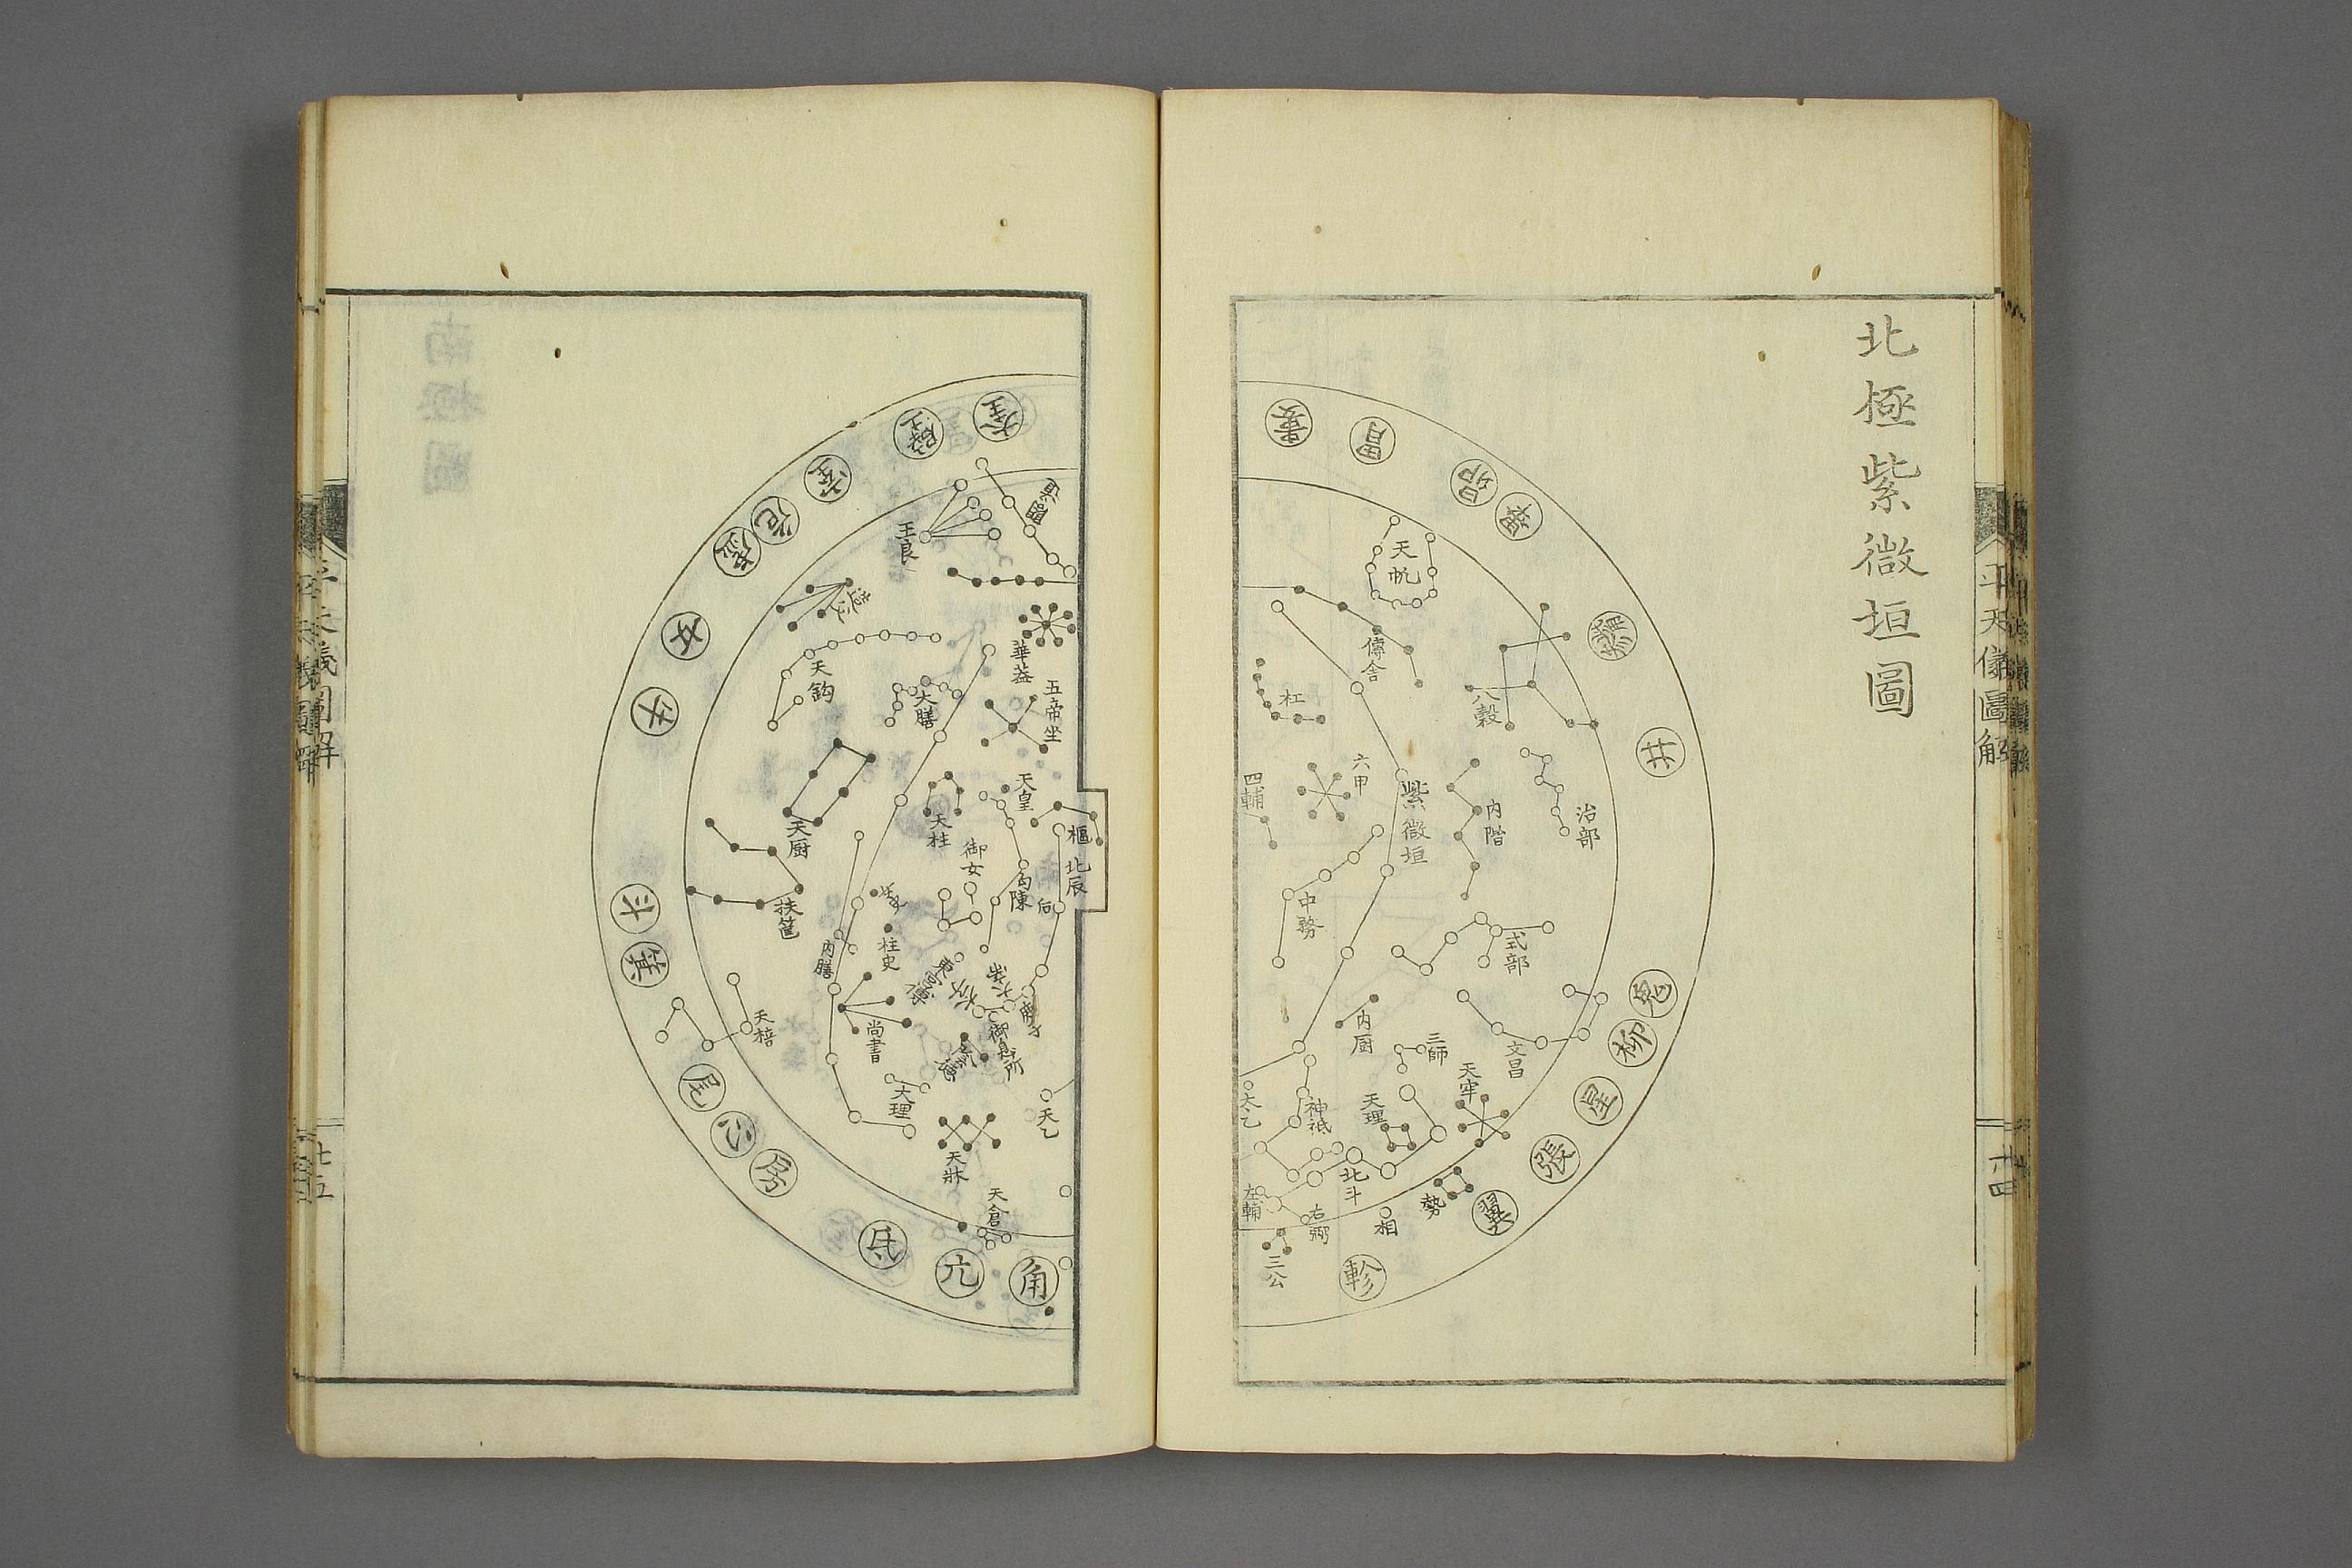 北極紫微垣圖
平天儀圖解
十四
婁
胃
昴
畢
觜
井
鬼
柳
星
張
翼
軫
天帆
傳舎
八穀
杠
六甲
四輔
紫微垣
内階
治部
中務
式部
内厨
三師
文昌
天牢
天理
神祗
太乙
北斗
勢
相
左輔
右弼
三公
奎
壁
室
危
虚
女
牛
斗
箕
尾
心
房
氐
亢
角
王良
閣道
造父
華蓋
五帝坐
天鈎
大膳
天皇
天柱
御女
勾陳
后
樞
北辰
天厨
扶筐
女史
柱史
内膳
東宮傅
太子
御息所
尚書
天棓
大理
天乙
天牀
天倉
平天儀圖解
十五